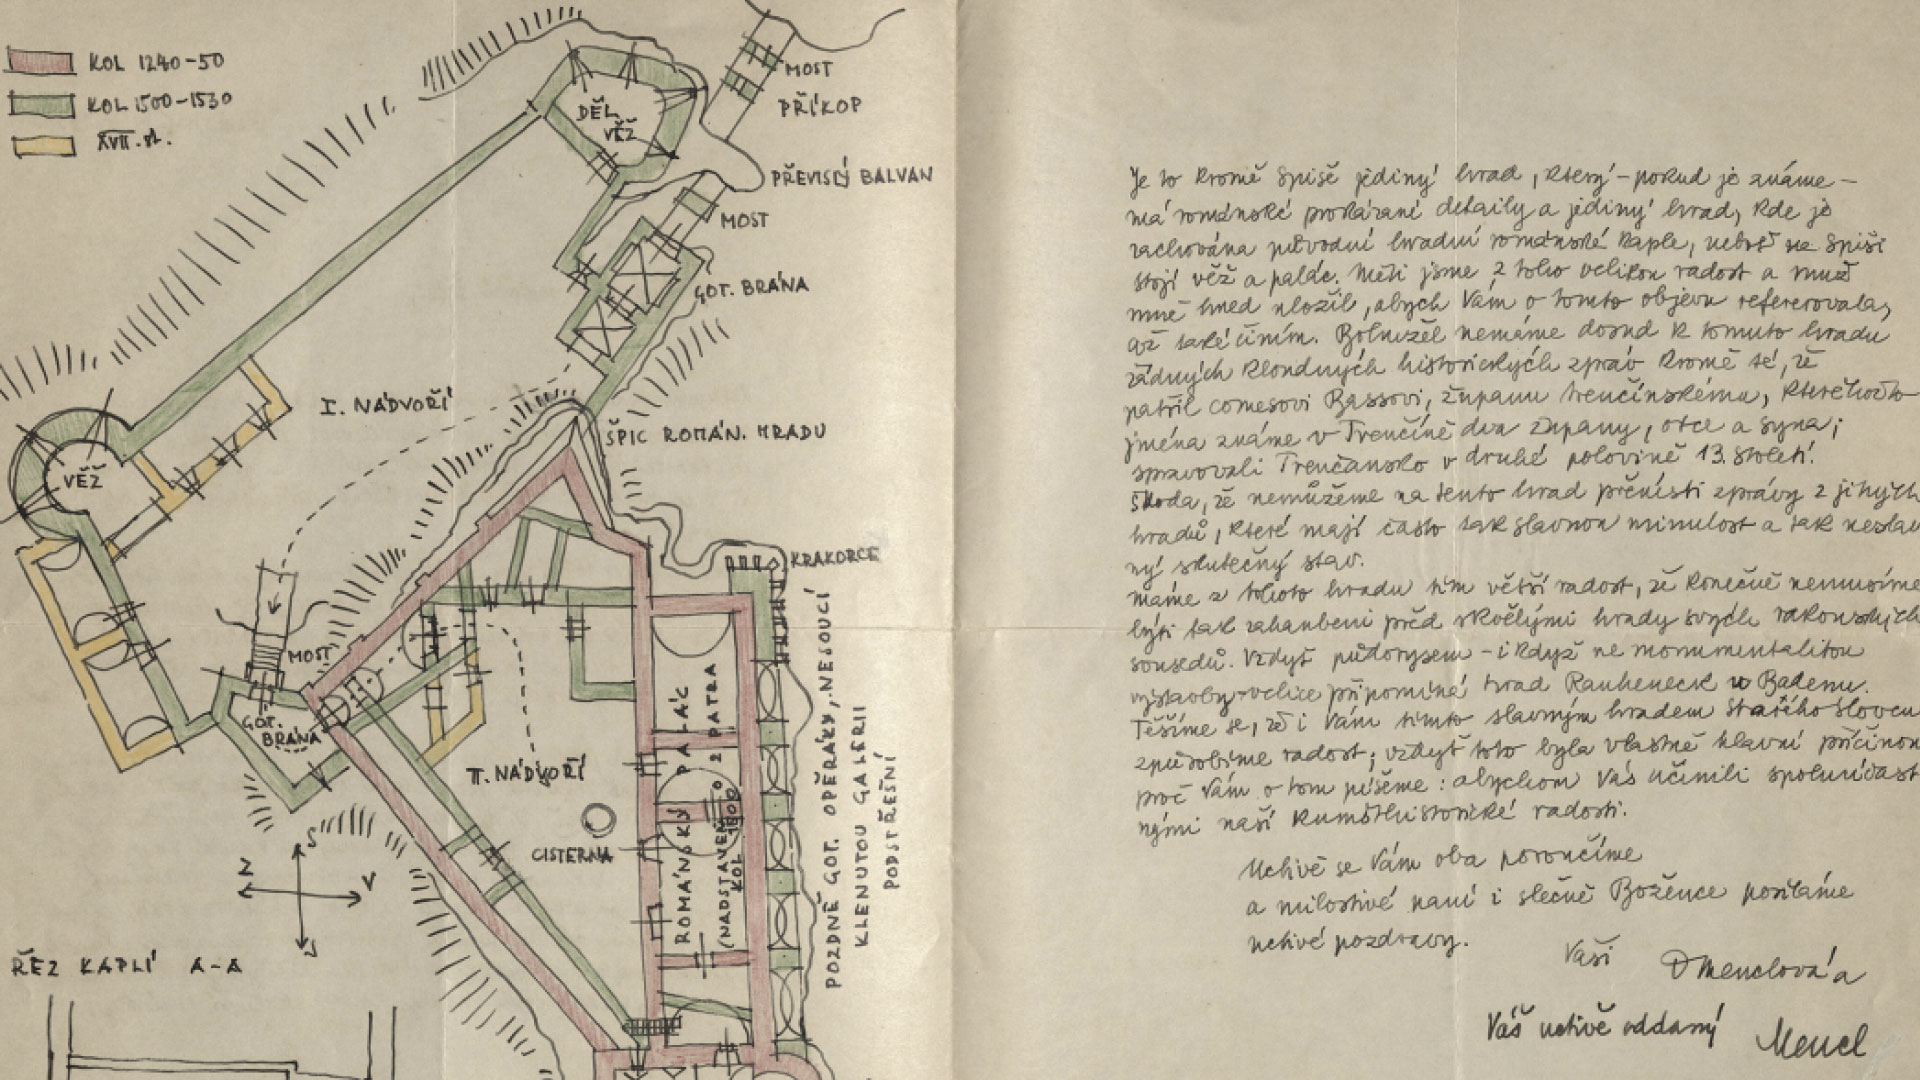 KOL 1240-50
KOL 1500-1530
XVII. st.
DĚL.
VĚŽ
MOST
PŘÍKOP
PŘEVISLÝ BALVAN
MOST
GOT. BRÁNA
I. NÁDVOŘÍ
ŠPIC ROMÁN. HRADU
VĚŽ
KRAKORCE
MOST
GOT.
BRÁNA
II. NÁDVOŘÍ
CISTERNA
ROMÁNSKÝ PALÁC
(NADSTAVEN O 2 PATRA
KOL 1500)
POZDNĚ GOT. OPĚRÁKY, NESOUCÍ
KLENUTOU GALERII
PODSTŘEŠNÍ
S
Z
V
J
ŘEZ KAPLÍ A-A
Je to kromě Spiše jediný hrad, který – pokud je známe –
má románské prokázané detaily a jediný hrad, kde je
zachována původní hradní románská kaple, neboť na Spiši
stojí věž a palác. Měli jsme z toho velikou radost a muž
mně hned uložil, abych Vám o tomto objevu referovala,
což také činím. Bohužel nemáme dosud k tomuto hradu
žádných kloudných historických zpráv kromě té, že
patřil comesovi Bassovi, županu trenčínskému, kteréhožto
jména známe v Trenčíně dva župany, otce a syna;
spravovali Trenčansko v druhé polovině 13. století.
Škoda, že nemůžeme na tento hrad přenésti zprávy z jiných
hradů, které mají často tak slavnou minulost a tak neslav
ný skutečný stav.
Máme z tohoto hradu tím větší radost, že konečně nemusíme
býti tak zahanbeni před skvělými hrady svých rakouských
sousedů. Vždyť půdorysem – i když ne monumentalitou
výstavby – velice připomíná hrad Rauheneck u Badenu.
Těšíme se, že i Vám tímto slavným hradem starého Sloven
způsobíme radost; vždyť toto byla vlastně hlavní příčinou
proč Vám o tom píšeme: abychom Vás učinili spoluúčast
nými naší kumšthistorické radosti.
Uctivě se Vám oba poroučíme
a milostivé paní i slečně Božence posíláme
uctivé pozdravy.
Vaši
DMenclová a
Váš uctivě oddaný
Mencl